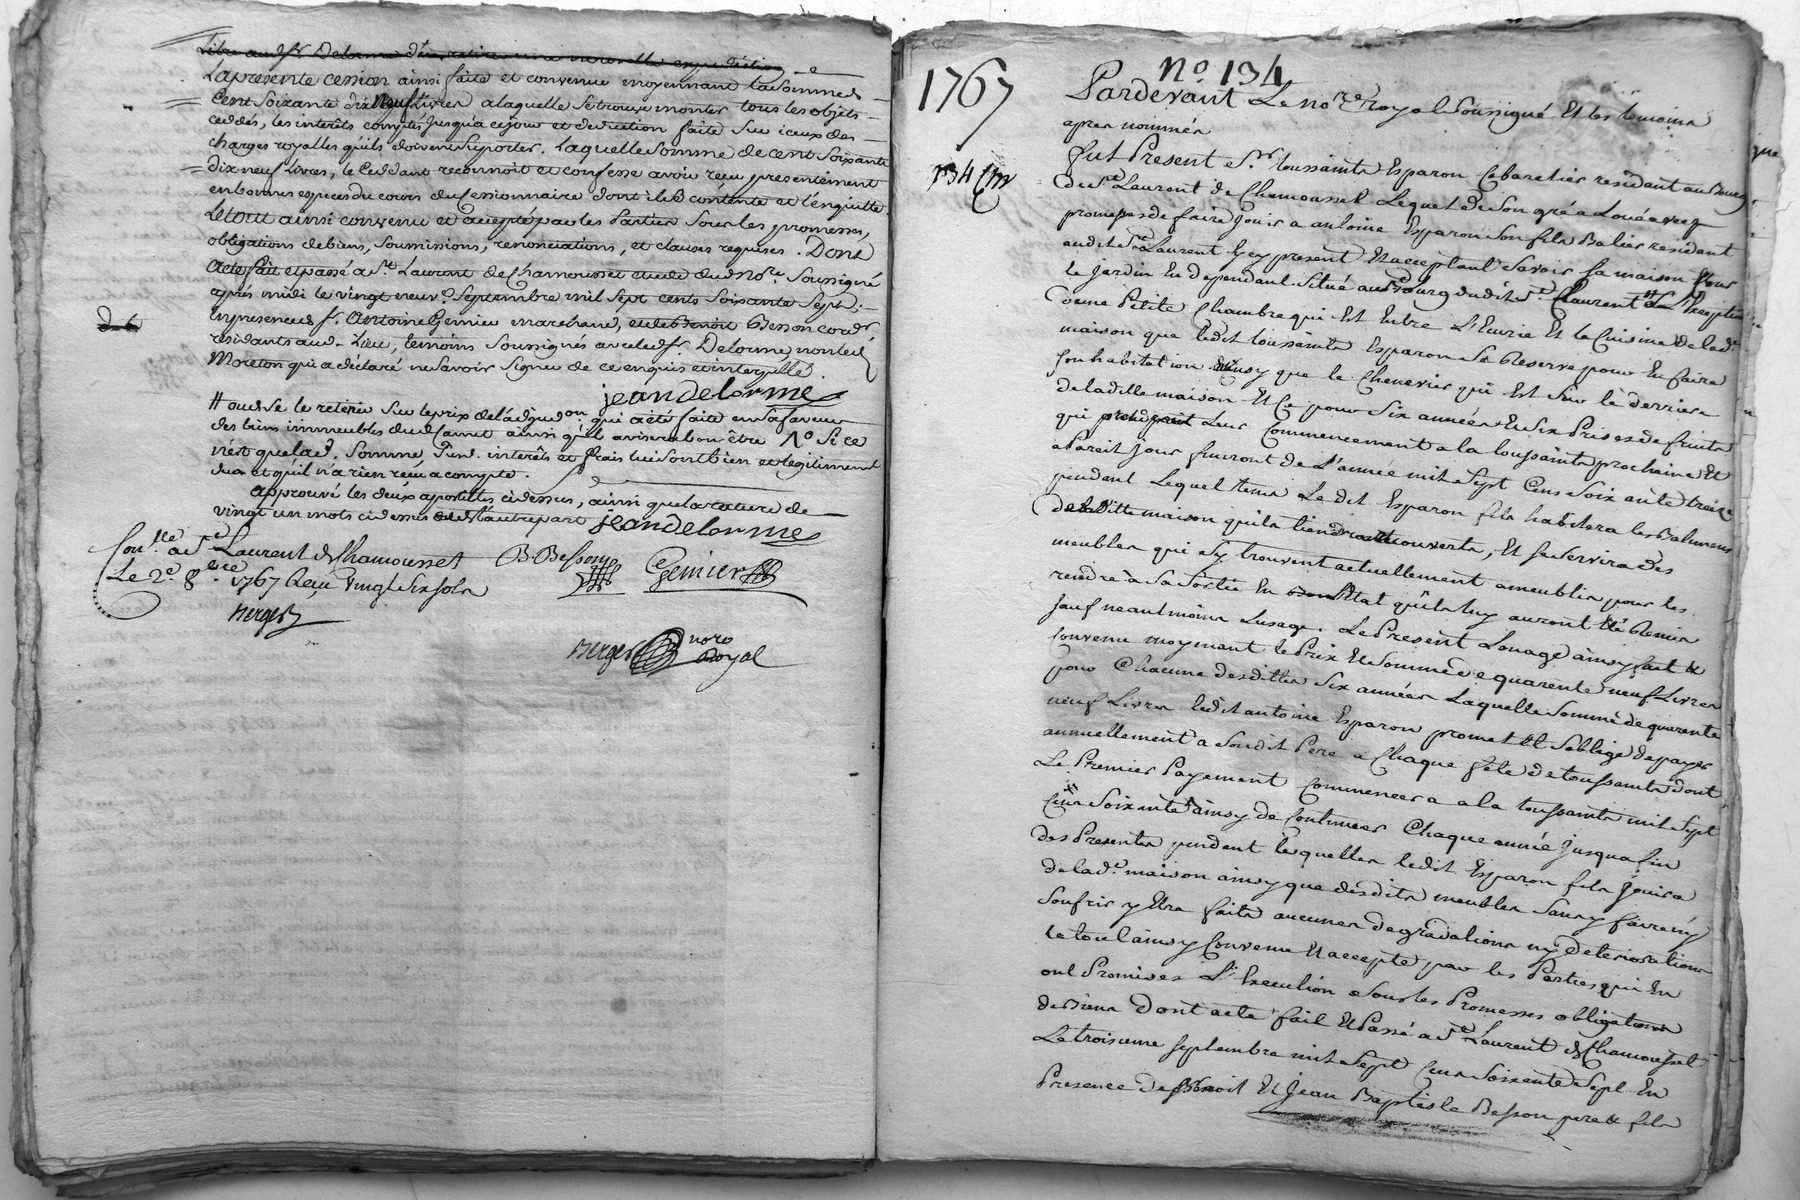 Libre audsr Delorme d'en retirer une nouvelle expedition
La presente cession ainsi faite et convenue moyennant la somme de
Cent soixante dix neuf livres a laquelle se trouve monter tous les objets
cedés, les interêts comptés jusqu'a ce jour et deduction faite sur iceux des
charges royalles qu'ils doivent suporter. Laquelle somme de cent soixante
dix neuf Livres, le Cedant reconnoit et confesse avoir reçu presentement
en bonnes especes du cours du Cessionnaire dont il se contente et l'en quitte
Le tout ainsi convenu et accepté par les Parties sous les promesses,
obligations de biens, soumissions, renonciations, et clauses requises. Dont
Acte fait et passé a St. Laurent de Chamousset etude dud nore. soussigné
après midi le vingt neuf. Septembre mil sept cents soixante sept.
en presence de sr. Antoine Genier marchand, et de Benoit Besson cordr
residants aud. Lieu, temoins soussignés avec ledsr. Delorme, non led
Moreton qui a déclaré ne savoir signer de ce enquis et interpellé.
jean delorme
# ou de se le retenir sur le prix de l'adjudon. qui a été faite en sa faveur
des biens immeubles dud Camet ainsi qu'il avisera bon être No. Si ce
n'est que lad. somme Prnd. interêts et frais lui sont bien et legitimement
dus et qu'il n'a rien reçu a compte.
approuvé les deux apostilles cidessus, ainsi que la rature de
vingt un mots cidessus et de l'autre part jean delorme
Conllé a St Laurent de Chamousset B Besson Genier
Le 2e. 8bre 1767 Reçu Vingt Six sols
Berger
Berger nore
Royal
1767
No. 134
134 Cm
Pardevant Le nore royal soussigné Et les temoins
apres nommés
fut Present Sr. toussaints Esparon Cabaretier residant au Bourg
de St Laurent de Chamousset Lequel de son gré a Loué avec
promesses de faire jouir a antoine Esparon son fils Balier residant
audit St Laurent icy present Et acceptant Savoir sa maison Cour
Le jardin En dependant Situé au Bourg dudit St. Laurent a L'Exception
d'une Petite Chambre qui Est Entre L'Ecurie Et la Cuisine de lade.
maison que ledit toussaints Esparon se Reserve pour En faire
son habitation ainsy que le Chenevier qui Est Sur le derriere
de laditte maison Et Ce pour Six années Et Six Prises de fruits
qui prendront Leur Commencement a la toussaints prochaine Et
a Pareil jour finiront de L'année mil Sept Cens Soixante treize
pendant Lequel tems Le dit Esparon fils habitera les Batimens
de laditte maison qu'il tiendra couverts, Et se servira des
meubles qui s'y trouvent actuellement a meublés pour les
rendre à sa sortie En Etat qu'ils luy auront Eté Remis
sauf neantmoins Lusage. Le Present Louage ainsy fait &
convenu moyennant le Prix Et Somme de quarente neuf Livres
pour Chacune desdittes Six années Laquelle Somme de quarente
neuf Livres ledit antoine Esparon promet Et s'oblige de payer
annuellement a Son dit Pere a Chaque fete de toussaints dont
Le Premier Payement Commencera a la toussaints mil Sept
Cens Soixante ainsy de Continuer Chaque année jusqua fin
des Presentes pendant lesquelles ledit Esparon fils jouira
de lade. maison ainsy que desdits meubles Sans y faire ny
soufrir y Etre faits aucunes degradations ny deteriorations
Le tout ainsy Convenu Et accepté par les Parties qui En
ont Promises L'Execution Sous les Promesses obligations
de Biens dont acte fait Et Passé a St Laurent de Chamousset
Le troisieme septembre mil Sept Cens Soixante Sept En
Presence de Benoit Et jean Baptiste Besson pere & fils